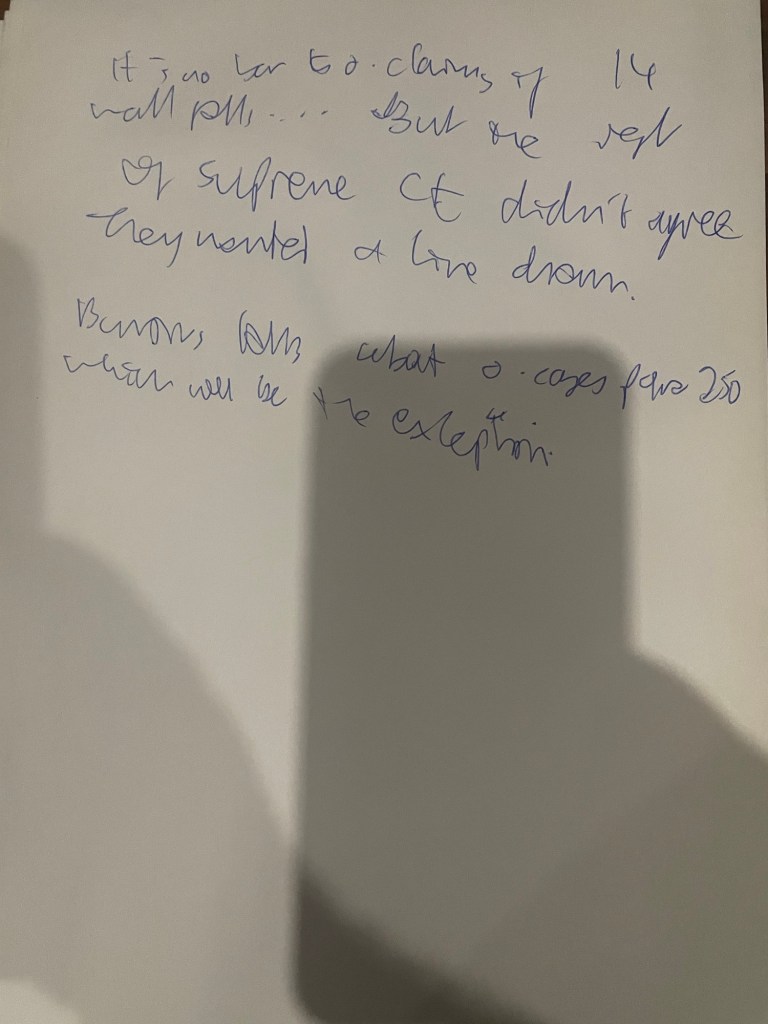 It is no bar to o. claims of 14
wall plls .... But the rest
of supreme Ct didn't agree
they wanted a line drawn.
Burrows talks what o. cases para 250
which will be the exception.